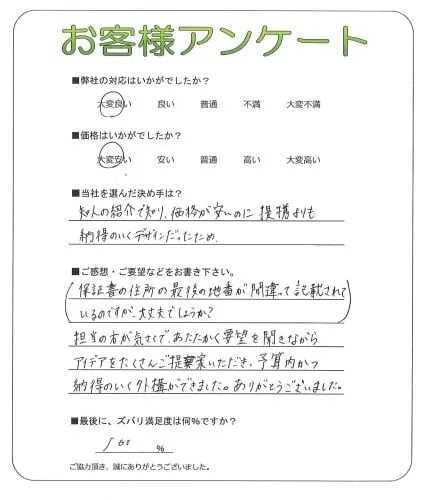 お客様アンケート
■弊社の対応はいかがでしたか？
大変良い 良い 普通 不満 大変不満
■価格はいかがでしたか？
大変安い 安い 普通 高い 大変高い
■当社を選んだ決め手は？
知人の紹介で知り、価格が安いのに提携よりも
納得のいくデザインだったため。
■ご感想・ご要望などをお書き下さい。
(保証書の住所の最後の地番が間違って記載されて
いるのですが、大丈夫でしょうか？)
担当の方が気さくで、あたたかく要望を聞きながら
アイデアをたくさんご提案いただき、予算内かつ
納得のいく外構ができました。ありがとうございました。
■最後に、ズバリ満足度は何％ですか？
100 %
ご協力頂き、誠にありがとうございました。